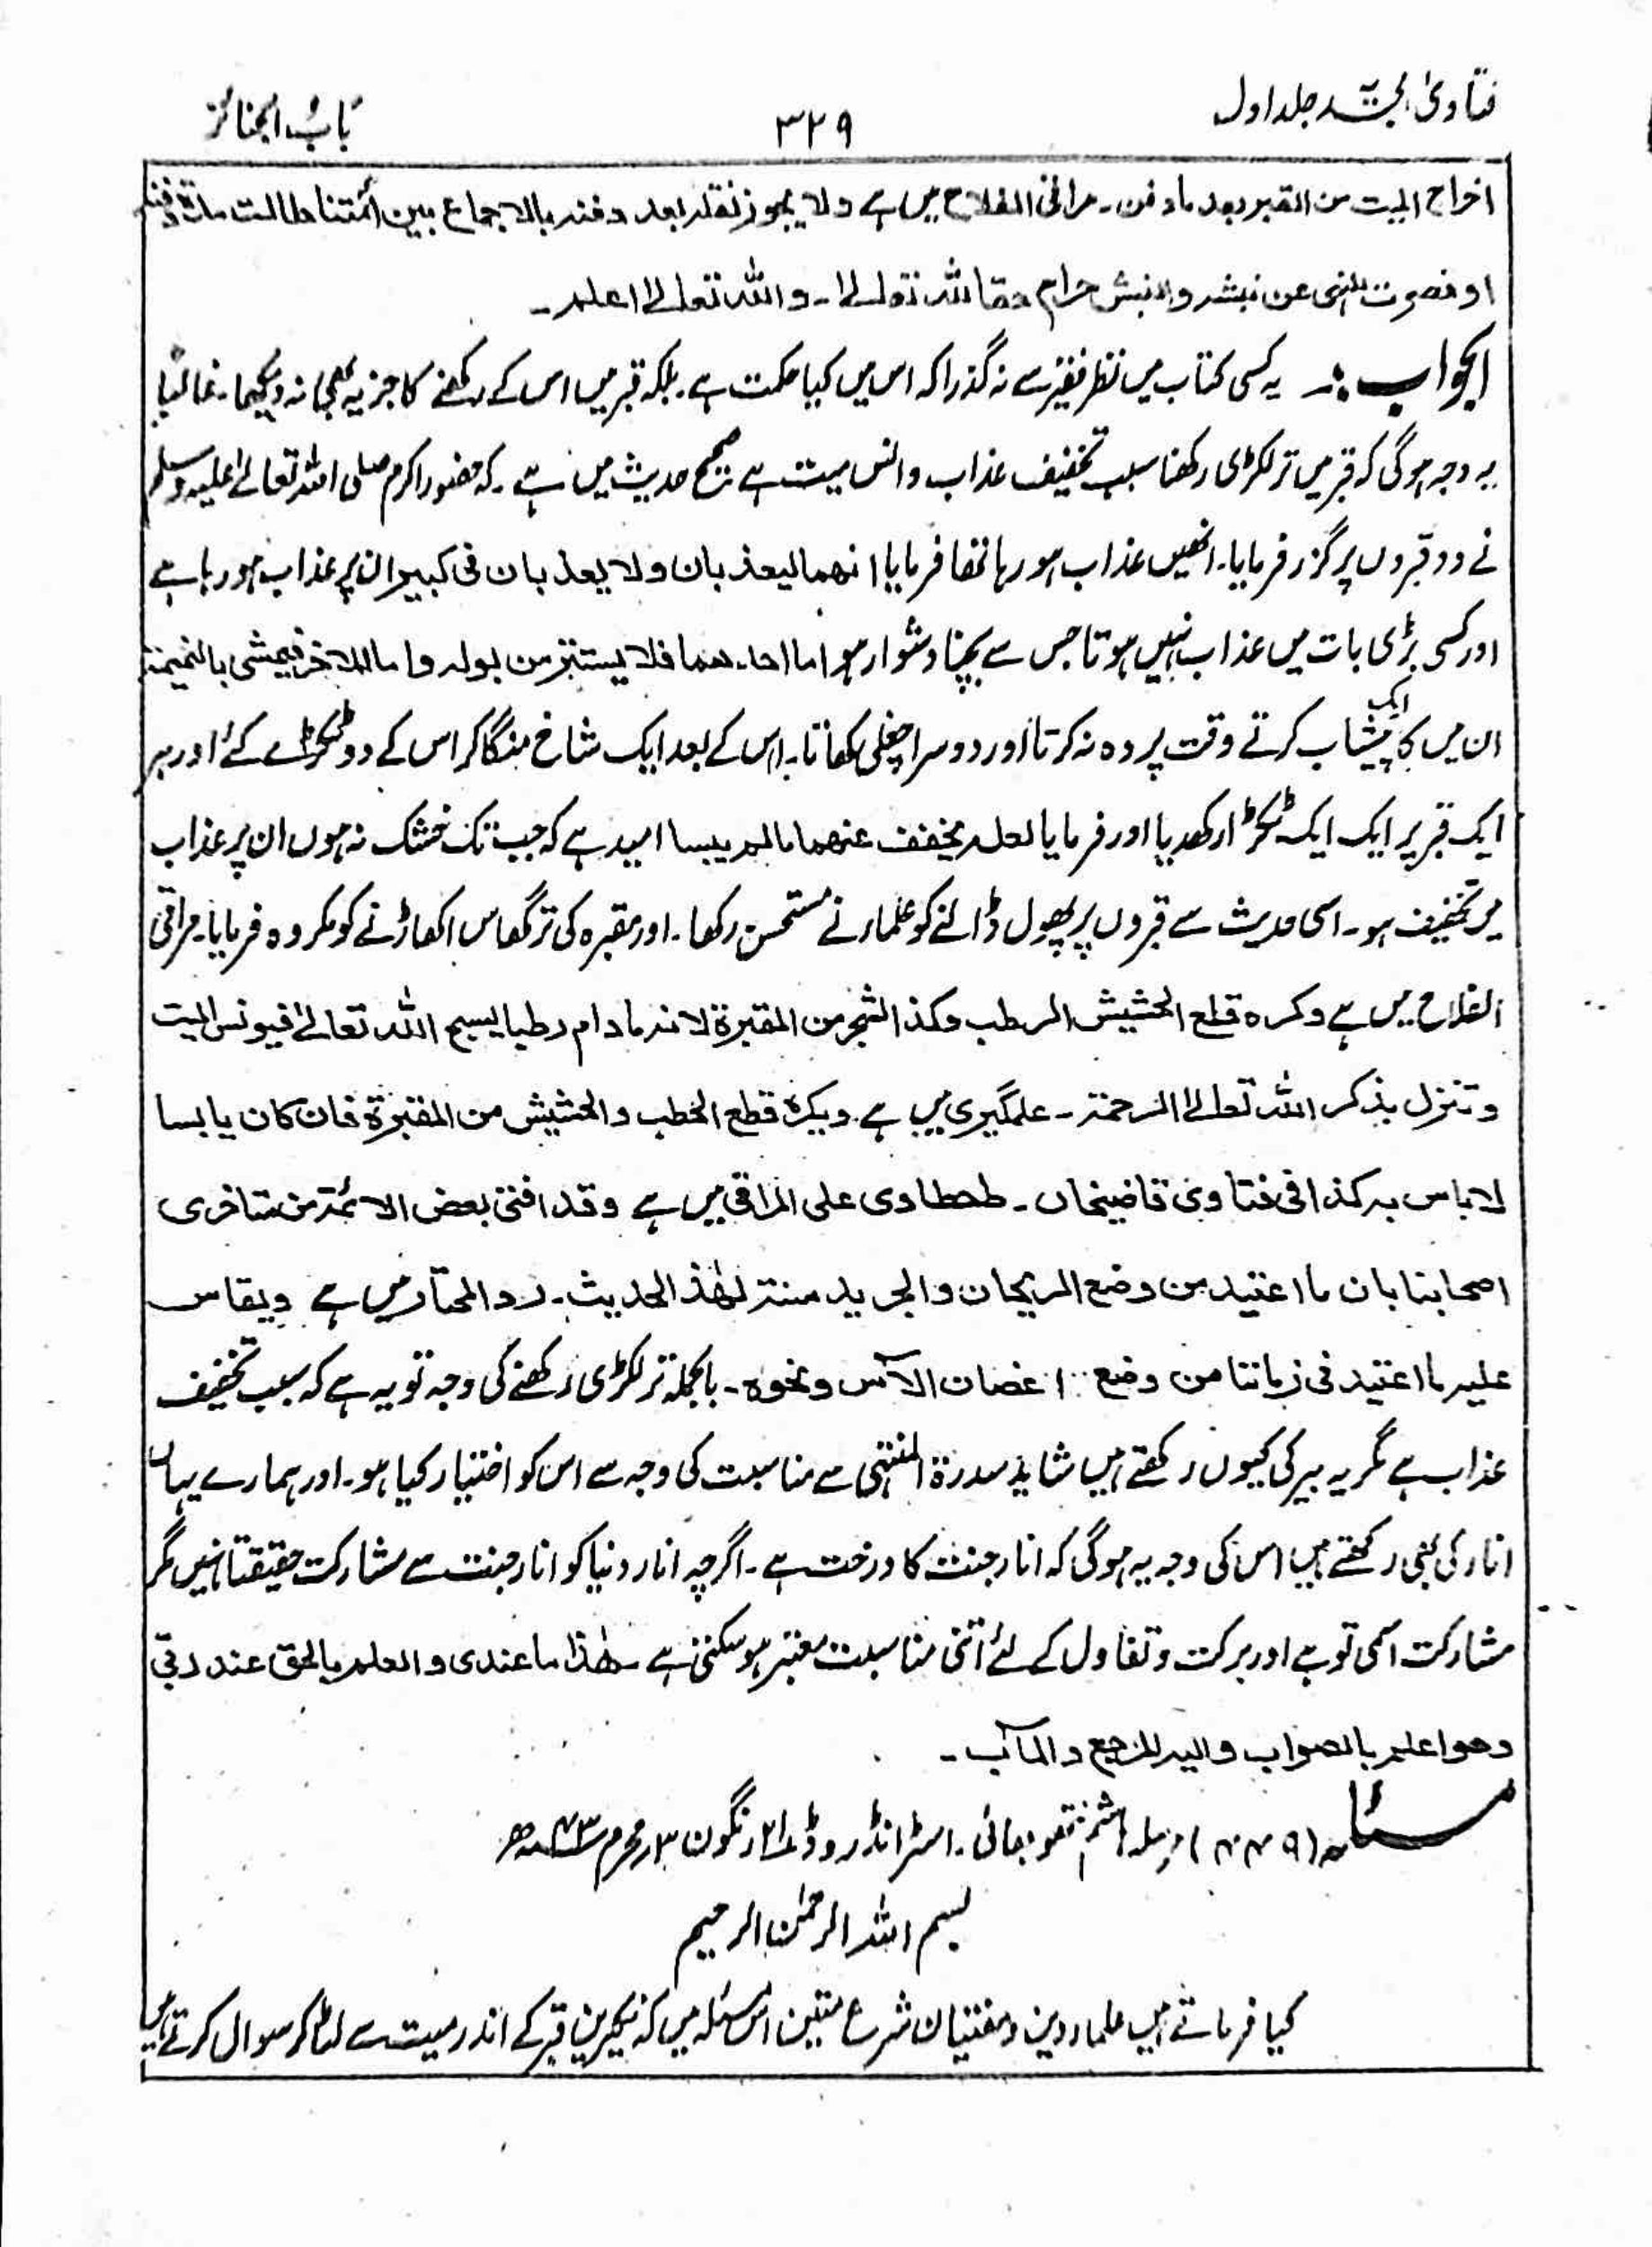 فتاویٰ امجدیہ جلد اول
۳۲۹
باب الجنائز
اخراج المیت من القبر بعد ما دفن۔ مراقی الفلاح میں ہے ولا یجوز نقلہ بعد دفنہ بالاجماع بین أئمتنا طالت مدۃ دفنہ
او قصرت للنہی عن نبشہ والنبش حرام حقا للہ تعالیٰ۔ واللہ تعالیٰ اعلم۔
الجواب:۔ یہ کسی کتاب میں نظر فقیر سے نہ گذرا کہ اس میں کیا حکمت ہے۔ بلکہ قبر میں اس کے رکھنے کا جزیہ بھی نہ دیکھا۔ غالبًا
یہ وجہ ہوگی کہ قبر میں تر لکڑی رکھنا سبب تخفیف عذاب وانس میت ہے صحیح حدیث میں ہے۔ کہ حضور اکرم صلی اللہ تعالیٰ علیہ وسلم
نے دو قبروں پر گزر فرمایا۔ انھیں عذاب ہو رہا تھا فرمایا انھما لیعذبان ولا یعذبان فی کبیر ان پر عذاب ہو رہا ہے
اور کسی بڑی بات میں عذاب نہیں ہوتا جس سے بچنا دشوار ہو اما احدھما فلا یستنز من بولہ واما الاٰخر فیمشی بالنمیمۃ
ان میں کا ایک پیشاب کرتے وقت پردہ نہ کرتا اور دوسرا چغلی کھاتا۔ اس کے بعد ایک شاخ منگا کر اس کے دو ٹکڑے کئے اور ہر
ایک قبر پر ایک ایک ٹکڑا رکھدیا اور فرمایا لعلہ یخفف عنھما مالم ییبسا امید ہے کہ جب تک خشک نہ ہوں ان پر عذاب
میں تخفیف ہو۔ اسی حدیث سے قبروں پر پھول ڈالنے کو علماء نے مستحسن رکھا۔ اور مقبرہ کی تر گھاس اکھاڑنے کو مکروہ فرمایا۔ مراقی
الفلاح میں ہے وکرہ قلع الحشیش الرطب وکذا الشجر من المقبرۃ لانہ مادام رطبا یسبح اللہ تعالیٰ فیونس المیت
وتنزل بذکر اللہ تعالیٰ الرحمۃ۔ علمگیری میں ہے۔ ویکرہ قطع الحطب والحشیش من المقبرۃ فان کان یابسا
لا باس بہ کذا فی فتاوی قاضیخاں۔ طحطاوی علی المراقی میں ہے وقد افتی بعض الائمۃ من متاخری
اصحابنا بان ما اعتید من وضع الریحان والجرید سنۃ لھٰذا الحدیث۔ رد المحتار میں ہے ویقاس
علیہ ما اعتید فی زماننا من وضع اغصان الآس ونحوہ۔ بالجملہ تر لکڑی رکھنے کی وجہ تو یہ ہے کہ سبب تخفیف
عذاب ہے مگر یہ بیر کی کیوں رکھتے ہیں شاید سدرۃ المنتہی سے مناسبت کی وجہ سے اس کو اختیار کیا ہو۔ اور ہمارے یہاں
انار کی بھی رکھتے ہیں اس کی وجہ یہ ہوگی کہ انار جنت کا درخت ہے۔ اگرچہ انار دنیا کو انار جنت سے مشارکت حقیقتاً نہیں مگر
مشارکت اسمی تو ہے اور برکت وتفاول کے لئے اتنی مناسبت معتبر ہو سکتی ہے۔ ھٰذا ما عندی والعلم بالحق عند ربی
وھو اعلم بالصواب والیہ المرجع والمآب۔
مسئلہ (۴۴۹) مرسلہ ہاشم نتھو بھائی۔ اسٹرانڈ روڈ رنگون ۳؍ محرم ۴۳ھ
بسم اللہ الرحمٰن الرحیم
کیا فرماتے ہیں علماء دین ومفتیان شرع متین اس مسئلہ میں کہ نکیرین قبر کے اندر میت سے اٹھا کر سوال کرتے ہیں